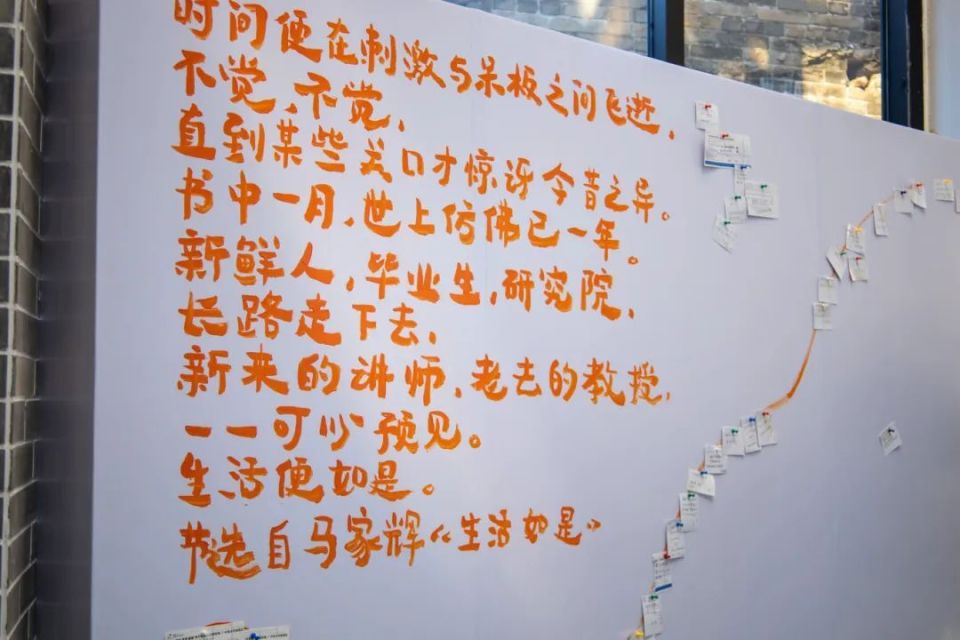 时间便在刺激与呆板之间飞逝，
不觉，不觉，
直到某些关口才惊讶今昔之异。
书中一月，世上仿佛已一年。
新鲜人，毕业生，研究院，
长路走下去，
新来的讲师，老去的教授，
一一可以预见。
生活便如是。
节选自马家辉“生活如是”